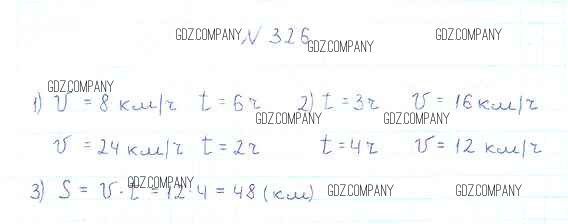 GDZ.COMPANY № 326 GDZ.COMPANY GDZ.COMPANY
GDZ.COMPANY
1) v = 8 км/ч t = 6ч 2) t = 3ч v = 16 км/ч
GDZ.COMPANY GDZ.COMPANY
v = 24 км/ч t = 2ч t = 4ч v = 12 км/ч
GDZ.COMPANY
3) S = v · t = 12 · 4 = 48 (км) GDZ.COMPANY GDZ.COMPANY